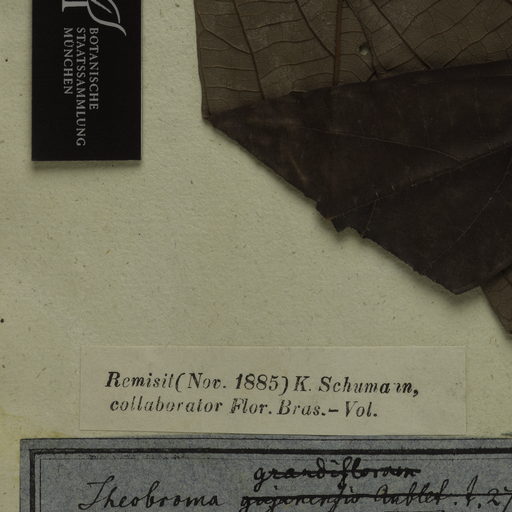 BOTANISCHE
STAATSSAMMLUNG
MÜNCHEN
Remisit (Nov. 1885) K. Schumann,
collaborator Flor. Bras.-Vol.
grandiflorum
Theobroma gujanensis Aublet. t. 27